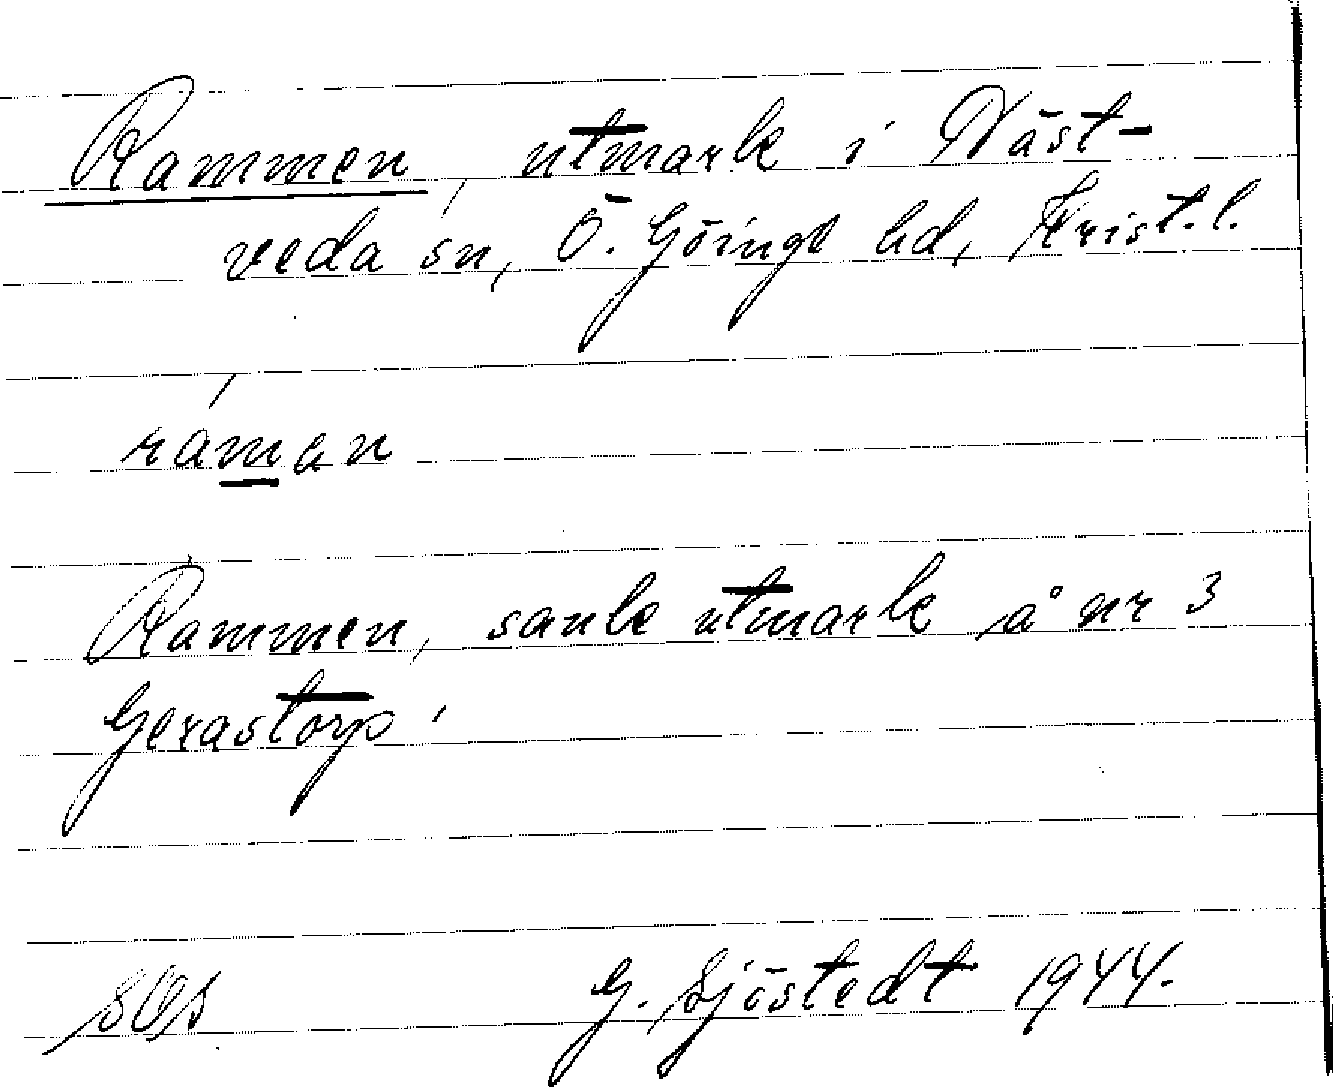 Rammen, utmark i Näst-
veda sn, Ö. Göinge hd, Krist.l.
ráman
Rammen, sank utmark å nr 3
Gerastorp.
G. Sjöstedt 1944.